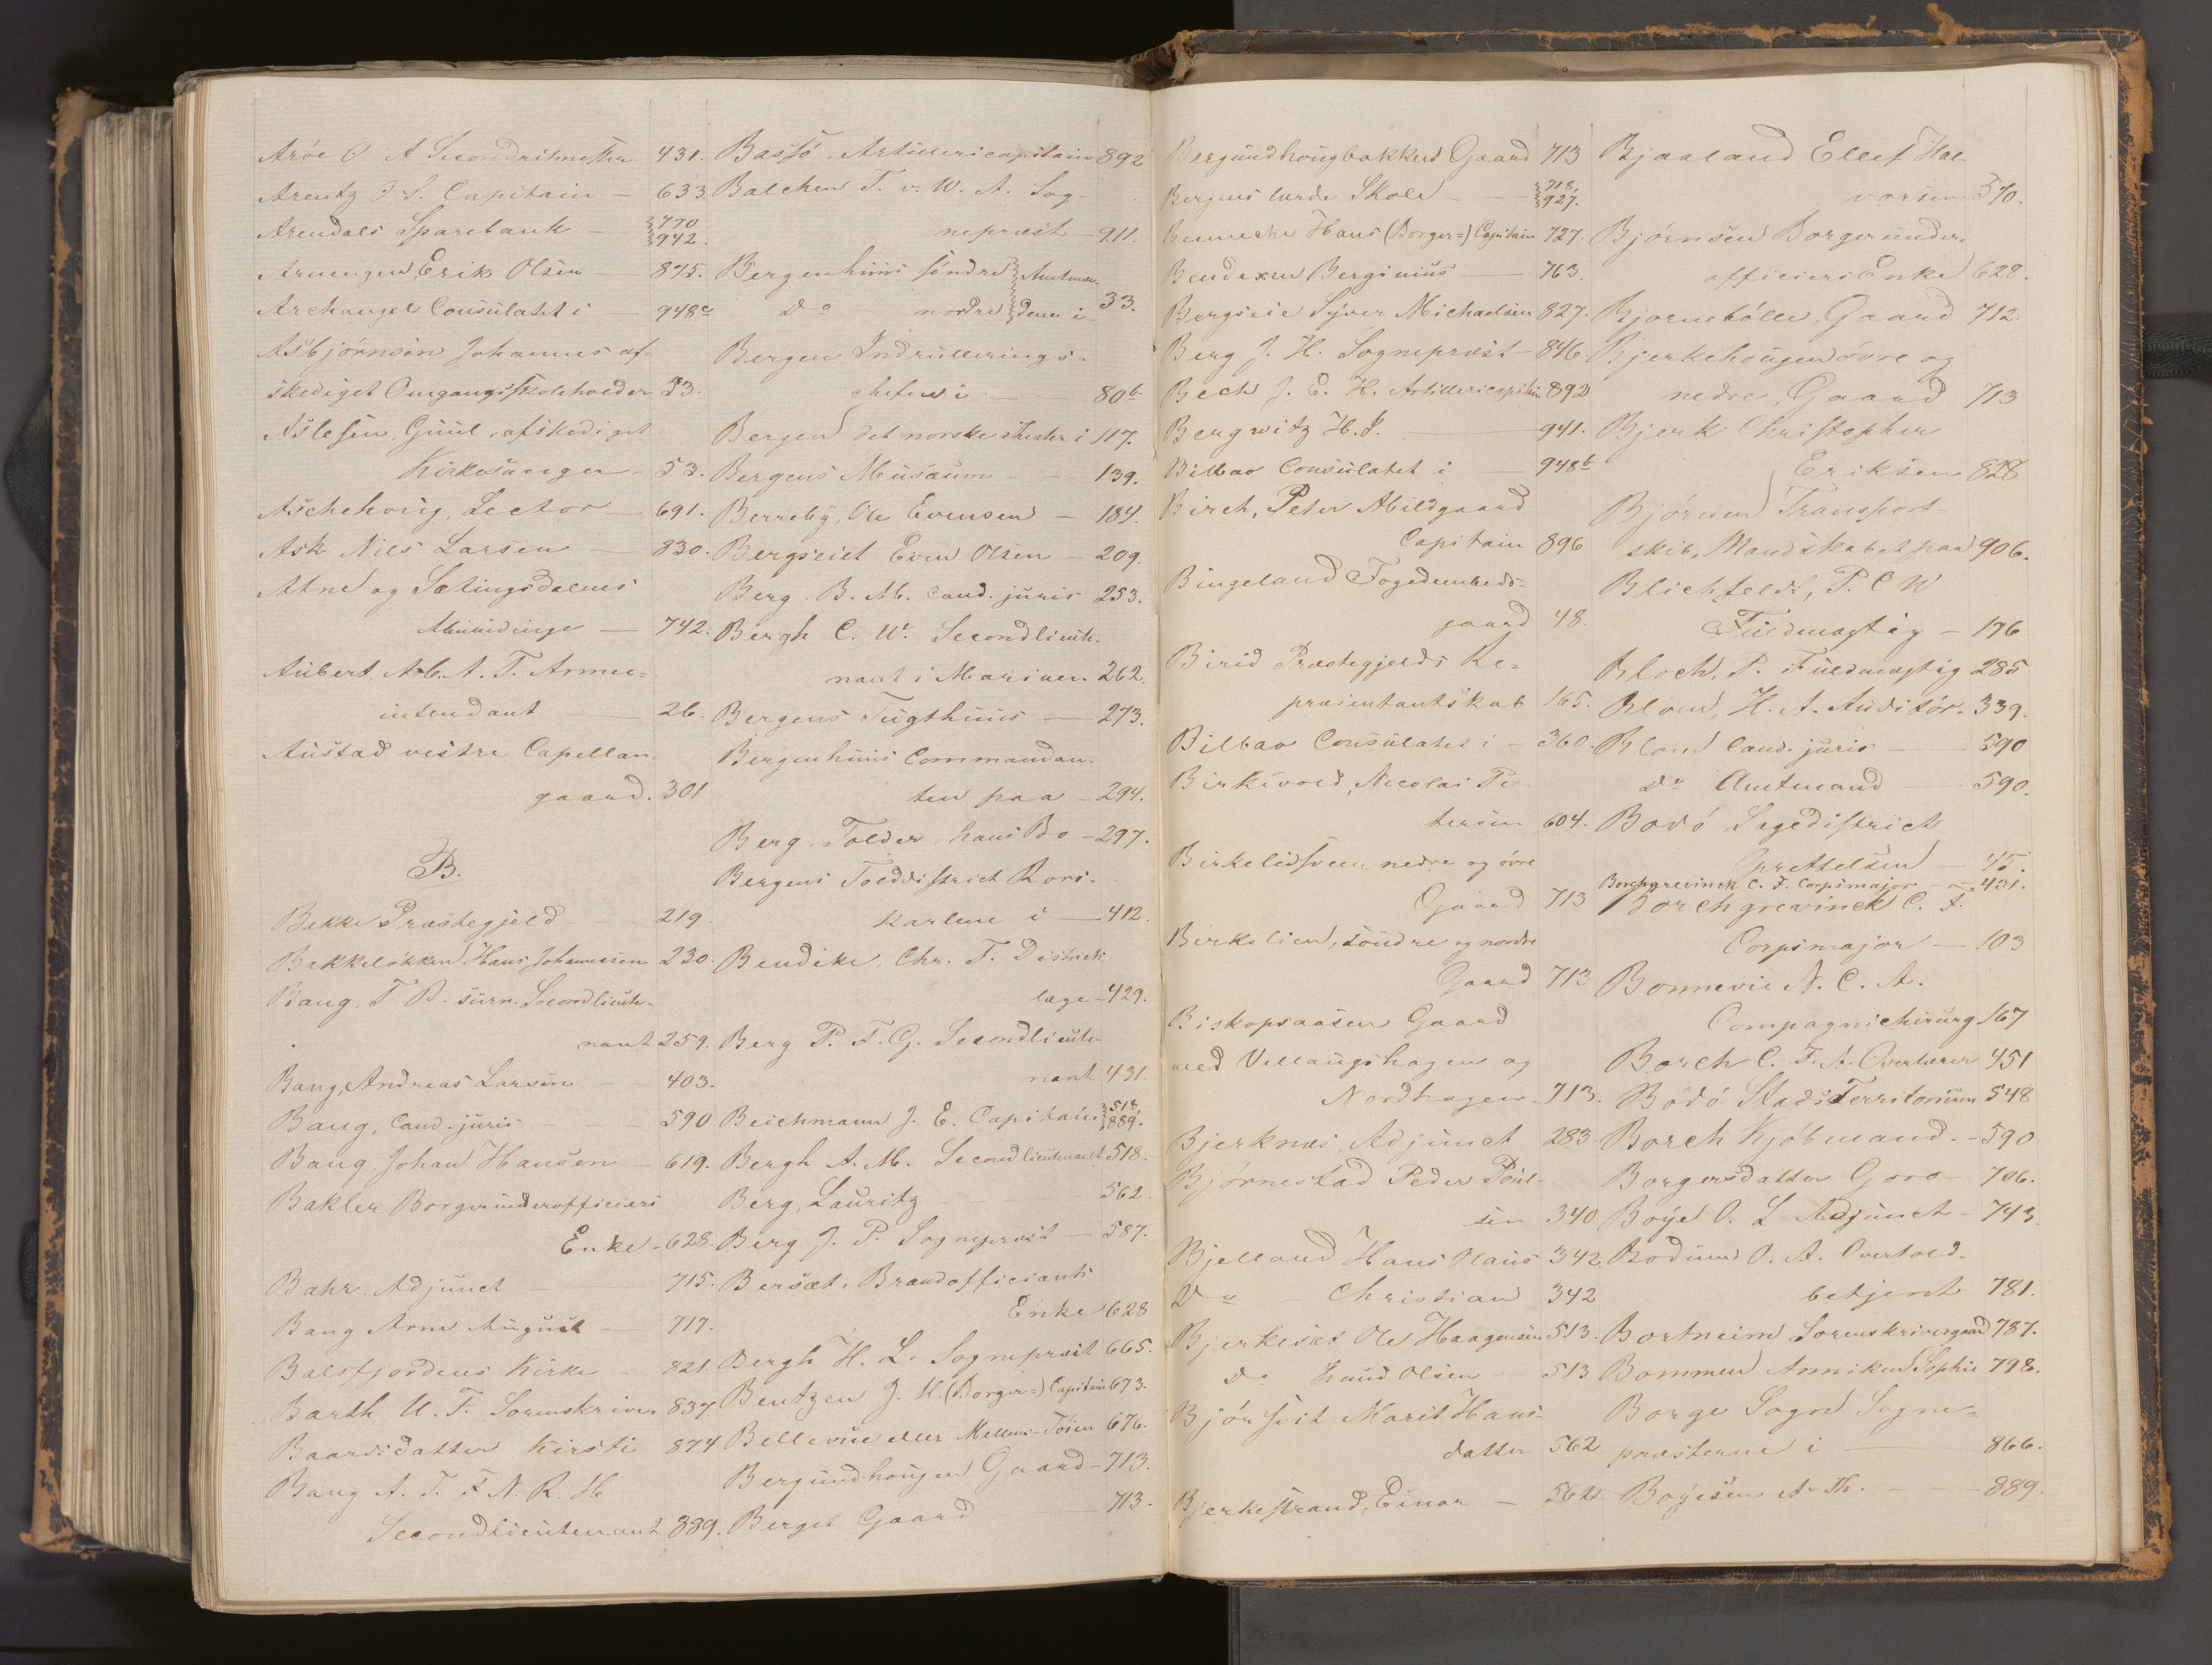 Aröe O. A Secondritmester 431.
Arentz F. S. Capitain — 633.
Arendals Sparebank — 770
942.
Erik Olsen — 875.
Archangel Consulatet i — 948a
Asbjörnsen Johannes af-
skediget Omgangsskoleholder 53.
Aslesen, Guul, afskediget
Kirkesanger — 53.
Aschehoug, Lector — 691.
Ask Niels Larsen — 830.
Atne og Sætingsdalens
Alminding — 742.
Aubert, A. T. Armee-
intendant — 26.
Austad vestre Capellan-
gaard. 301
B.
Bakke Præstegjeld 219
Bakkelökken Hans Johannesen 230.
Bang, T. B. surn. Secondlieute-
nant 259.
Bang, Andreas Larsen — 403.
Bang, Cand. juris — 590
Bang, Johan Hansen — 619.
Bakler Borgerunderofficiers
Enke — 628.
Bahr, Adjunct — 715.
Bang Arne August — 717.
Balsfjordens Kirke — 821.
Barth U. F. Sorenskriver 837
Baardsdatter Kirsti 874
Bang A. T. F. N. R. H
Secondlieutenant 889.
Bassö Artillericapitain 892
Balchen T. v. W. A. Sog-
nepræst — 911.
Bergenhuus söndre Amtmæn-
do nordre dene i 33.
Bergen Indrullerings-
chefen i — 80b
Bergen det norske Theater i 117.
Bergens Museum — 139.
Berreby, Ole Evensen — 184.
Bergseiet Even Olsen — 209.
Berg B. M. cand. juris 253.
Bergh C. W. Secondlieute-
nant i Marinen 262.
Bergens Tugthuus — 273.
Bergenhuus Commandan-
ten paa — 294.
Berg Tolder, hans Bo — 297.
Bergens Tolddistrict Rors-
karlene i — 412.
Bendeke, Chr. T. District-
læge — 429.
Berg P. F. G. Secondlieute-
nant 431.
Beichmann J. E. Capitain 518.
889.
Bergh A. M. Secondlieutenant 518.
Berg, Lauritz 562.
Berg J. P. Sognepræst — 587.
Bersæt, Brandofficiants
Enke 628
Bergh H. L. Sognepræst 665.
Bentzen J. H. (Borger=) Capitain 673.
Bellevue eller Mellem-Töien 676.
Bergundhougen Gaard — 713.
Berget Gaard — 713.
Bergundhougbakken Gaard 713
Bergens lærde Skole — 718.
927.
Hans (Borger=) Capitain 727.
Bendexen Berginius — 763.
Bergseie Syver Michaelsen 827.
Berg J. H. Sognepræst — 846.
Bech J. E. H. Artillericapitain 892
Bergwitz H. J. — 941.
Bilbao Consulatet i — 948b
Birch, Peter Abildgaard
Capitain 896
Bingeland Fogedembeds-
gaard 48.
Birid Præstegjelds Re-
præsentantskab 165.
Bilbao Consulatet i — 360.
Birkevold, Nicolai Pe-
tersen 604.
Birkelidsveen nedre og övre
Gaard 713
Birkelien, söndre og nordre
Gaard 713
Biskopsaasen Gaard
med Vellaugshagen og
Nordhagen — 713.
Bjerknæs, Adjunct 283.
Björnestad Peder Poul-
sen 340
Bjelland Hans Olaus 342.
Do — Christian 342
Bjerkesæt Ole Haagensen 513.
do Knud Olsen — 513
Marit Hans-
datter 562
Bjerkestrand, Einar — 562
Bjaaland Ellef Hal-
vorsen 570.
Björnsen Borgerunder-
officiers Enke 628.
Bjornebölle, Gaard 712.
Bjerkehougen övre og
nedre, Gaard 713
Bjerk Christopher
Eriksen 828
Björnen Transport-
skib, Mandskabet paa 906.
Blichfeldt, P. C. W
Fuldmægtig — 176
Bloch, P. Fuldmægtig 285
Blom, H. A. Auditör. 339.
Blom Cand. juris — 590
do Amtmand — 590.
Bodö Lægedistrict
Oprettelsen — 45.
Borchgrevinck C. F. Corpsmajor — 431.
Borchgrevinck C. F.
Corpsmajor — 103
Bonnevie N. C. A.
Compagnichirurg 167
Borch C. F. A. Overlærer 451
Bodö Stads Territorium 548
Borch Kjöbmand. — 590
Borgersdatter Goro 706.
Boye O. L Adjunct — 743.
Bodum O. A. Overtold-
betjent 781.
Bortneim Sorenskrivergaard 787.
Bommen Anniken Sophie 798.
Borge Sogn Sogne-
præsterne i — 866.
Boyesen A. Th. — 889.